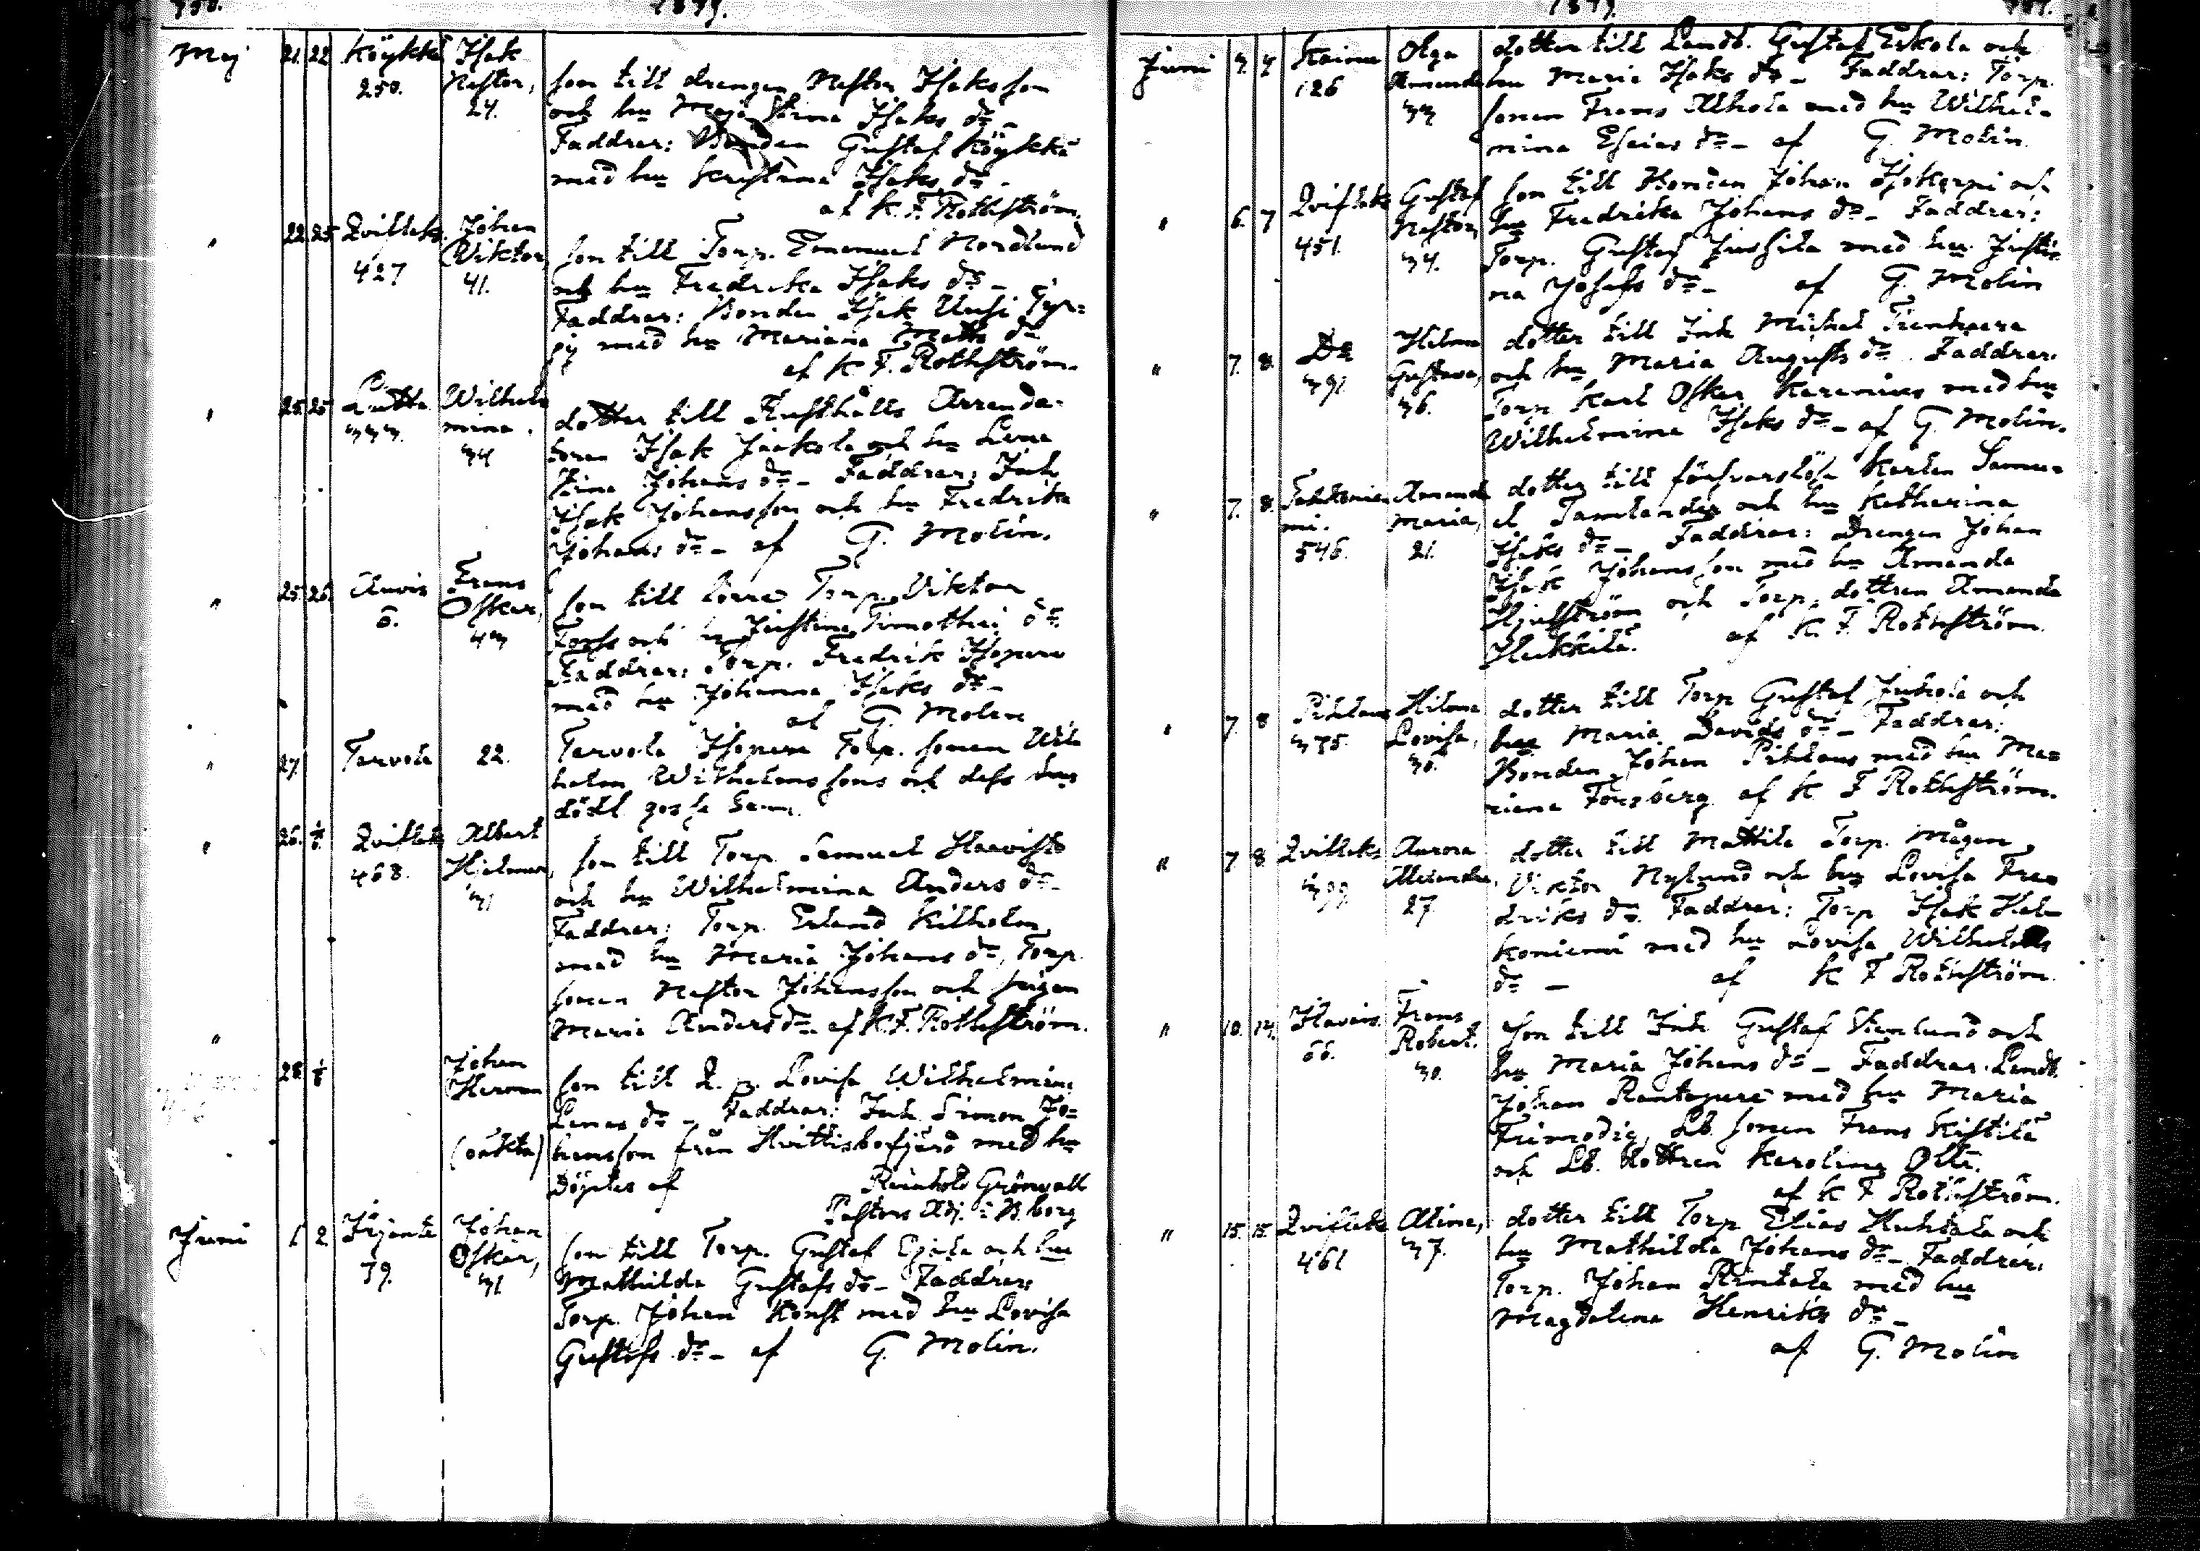 1879.
Maj 21. 22 Köykkä Isak
250. Nestor,
24.
son till drengen Nestor Isaksson
och hu Maja Stina Isaks dr -
Faddrar: Bonden Gustaf Köykkä
med hu Kristina Isaks dr -
af K. F. Rothström.
" 22 25 Qvifleks Johan
427 Viktor,
41.
son till Torp. Emanuel Nordlund
och hu Fredrika Isaks dr -
Faddrar: Bonden Isak Uusi
med hu Mariana Matts dr
af K. F. Rothström.
" 25 25 Lutta Wilhel-
333. mina.
34
dotter till Rusthålls Arrenda-
toren Isak Jaakola och hu Lena
Stina Johans dr - Faddrar: Inh
Isak Johansson och hu Fredrika
Johans dr - af G. Molin.
" 25. 26. Anvis Frans
6. Oskar,
43
son till Torp. Viktor
Forss och hu Justina Timothei dr
Faddrar: Torp. Fredrik Isopere
med hu Johanna Isaks dr -
af G. Molin
" 27 Tervola 22.
Tervola Isopere Torp. sonen Wil
helm Wilhelmssons och dess hus
dödf gosse barn.
" 26. 1/6 Qvifleks Albert
468. Hjalmar,
31
son till Torp Samuel Haavisto
och hu Wilhelmina Anders dr -
Faddrar: Torp. Erland Kilholm
med hu Maria Johans dr, Torp.
sonen Nestor Johansson och pigan
Maria Anders dr - af K. F. Rothström.
" 28 1/6 Johan
Herman
(oäkta)
son till Q. p. Lovisa Wilhelmina
Lenas dr - Faddrar: Inh. Simon Jo-
hansson från Hvittisbofjärd med hu
Döptes af Reinhold Grönvall
Pastors Adj. i B. borg
Juni 1 2 Irjanta Johan
79. Oskar,
31
son till Torp. Gustaf Ojala och hu
Mathilda Gustafs dr - Faddrar:
Torp. Johan Konst med hu Lovisa
Gustafs dr - af G. Molin.
1879.
Juni 3. 4 Kaione Olga
126 Amanda
33
dotter till Landb. Gustaf Eskola och
hu Maria Isaks dr - Faddrar: Torp.
sonen Frans Alhola med hu Wilhel-
mina Esaias dr - af G. Molin.
" 6. 7 Qvifleks Gustaf
451. Nestor,
34.
son till Bonden Johan Isokorpi och
hu Fredrika Johans dr - Faddrar:
Torp. Gustaf Jussila med hu Justi-
na Josefs dr - af G. Molin
" 7. 8. Do Hilma
391. Gustava,
36.
dotter till Inh Michel Tienhaara
och hu Maria Augusts dr Faddrar.
Torp Karl Oskar Karenius med hu
Wilhelmina Isaks dr - af G. Molin.
" 7. 8. Amanda
mi. Maria,
546. 21.
dotter till försvarslösa karlen Samu-
el Tamlander och hu Katharina
Isaks dr - Faddrar: Drengen Johan
Isak Johansson med hu Amanda
Sjuström och Torp. dottren Amanda
Heikkilä. af K. F. Rothström.
" 7. 8 Pihlaus Hilma
375. Lovisa,
36.
dotter till Torp Gustaf Juhola och
hu Maria Davids dr - Faddrar:
Bonden Johan Pihlaus med hu Ma-
riana Forsberg af K F Rothström.
" 7 8. Qvifleks Aurora
399. Alexandra,
27
dotter till Mattila Torp. Mågen
Viktor Nylund och hu Lovisa Fre-
driks dr. Faddrar: Torp Isak Hal-
koniemi med hu Lovisa Wilhelms
dr - af K F Rothström.
" 10. 14. Frans
66. Robert.
30.
son till Inh Gustaf Stenlund och
hu Maria Johans dr - Faddrar. Landb
Johan Rantapere med hu Maria
Frimodig, Lb. sonen Frans Kistilä
och Lb. dottren Karolina Olli.
af K F Rothström.
" 15. 15. Qvifleks Alina,
461 37.
dotter till Torp Elias Huhtala och
hu Mathilda Johans dr - Faddrar.
Torp. Johan Rintala med hu
Magdalena Henriks dr -
af G. Molin